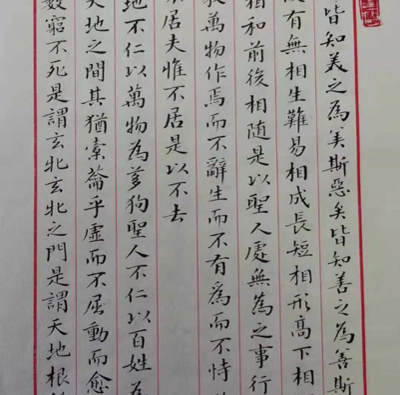 皆知美之為美斯惡矣皆知善之為善斯
有無相生難易相成長短相形高下相
相和前後相隨是以聖人處無為之事行
教萬物作焉而不辭生而不有為而不恃
居夫惟不居是以不去
地不仁以萬物為芻狗聖人不仁以百姓為
天地之間其猶索籥乎虛而不屈動而愈
數窮不死是謂玄牝玄牝之門是謂天地根